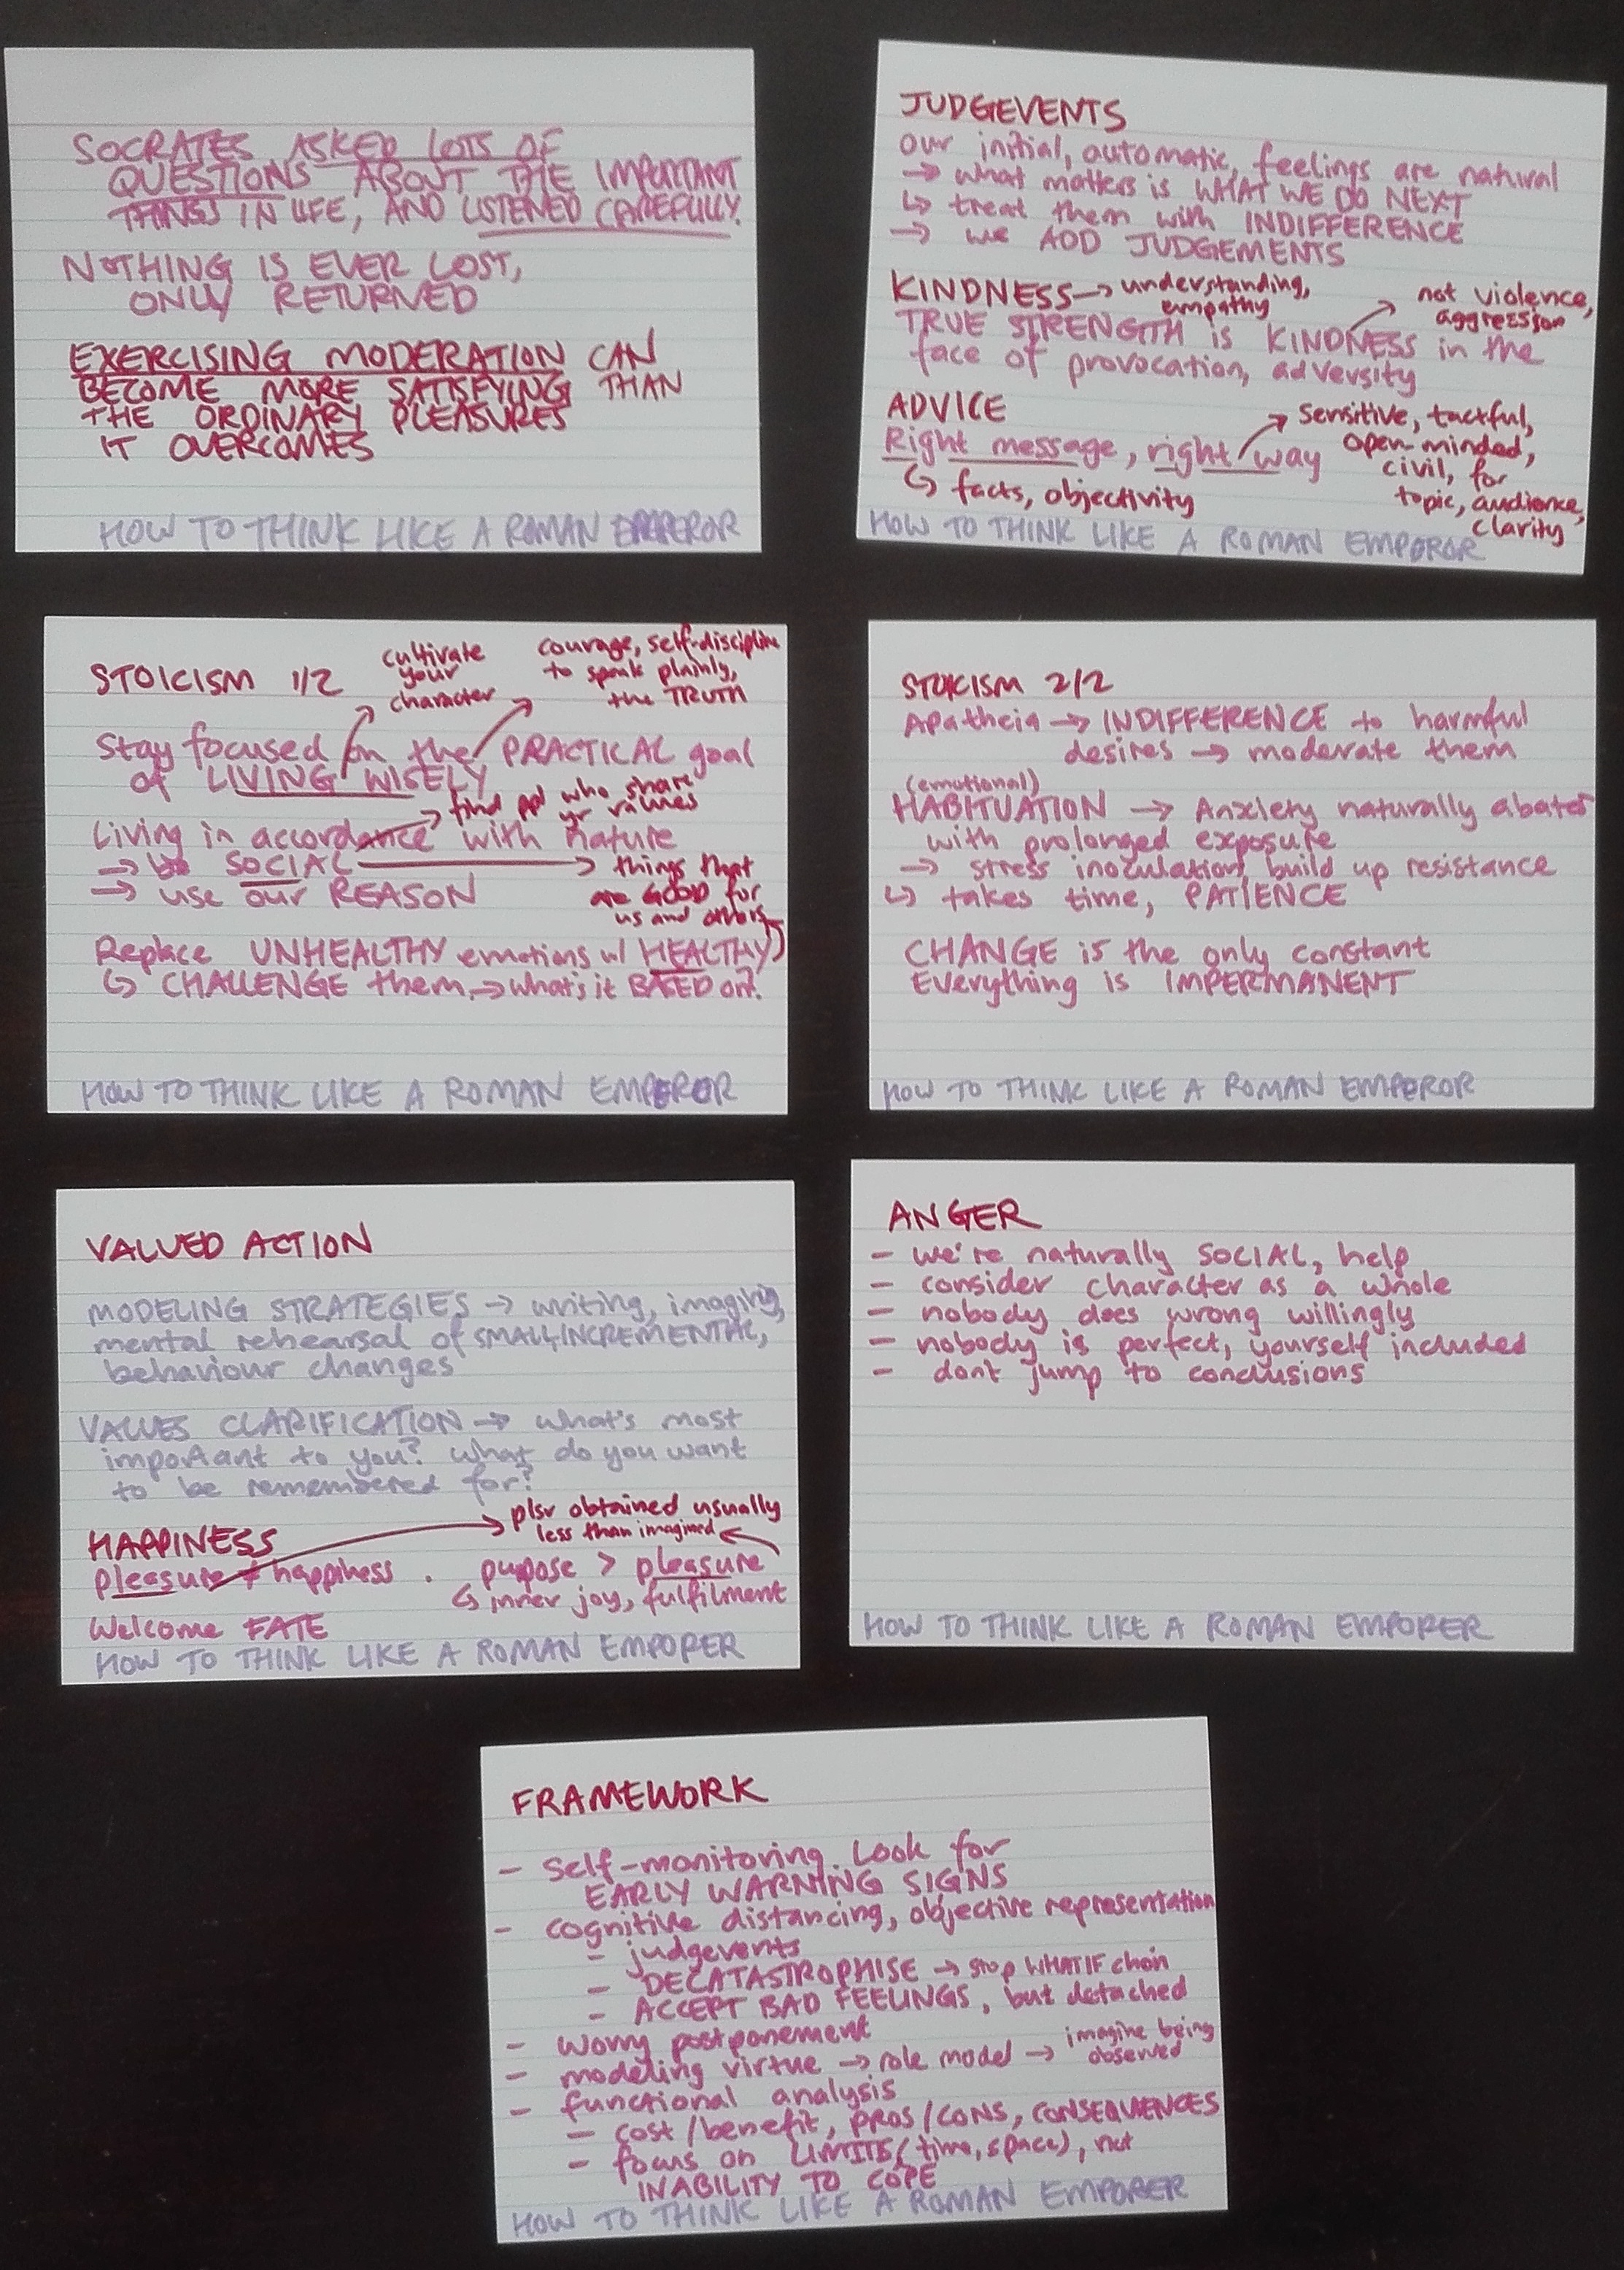 SOCRATES ASKED LOTS OF
QUESTIONS ABOUT THE IMPORTANT
THINGS IN LIFE, AND LISTENED CAREFULLY.
NOTHING IS EVER LOST,
ONLY RETURNED
EXERCISING MODERATION CAN
BECOME MORE SATISFYING THAN
THE ORDINARY PLEASURES
IT OVERCOMES
HOW TO THINK LIKE A ROMAN EMPEROR
JUDGEVENTS
our initial, automatic, feelings are natural
→ what matters is WHAT WE DO NEXT
↳ treat them with INDIFFERENCE
→ we ADD JUDGEMENTS
KINDNESS → understanding,
empathy
not violence,
aggression
TRUE STRENGTH is KINDNESS in the
face of provocation, adversity
ADVICE
Right message, right way
↳ facts, objectivity
sensitive, tactful,
open-minded,
civil, for
topic, audience,
clarity
HOW TO THINK LIKE A ROMAN EMPEROR
STOICISM 1/2
cultivate
your
character
courage, self-discipline
to speak plainly,
the TRUTH
Stay focused on the PRACTICAL goal
of LIVING WISELY
find ppl who share
yr values
Living in accordance with nature
→ be SOCIAL → things that
→ use our REASON
are GOOD for
us and others
Replace UNHEALTHY emotions w/ HEALTHY
↳ CHALLENGE them, → what's it BASED on?
HOW TO THINK LIKE A ROMAN EMPEROR
STOICISM 2/2
Apatheia → INDIFFERENCE to harmful
desires → moderate them
(emotional)
HABITUATION → Anxiety naturally abates
with prolonged exposure
→ stress inoculation, build up resistance
↳ takes time, PATIENCE
CHANGE is the only constant
Everything is IMPERMANENT
HOW TO THINK LIKE A ROMAN EMPEROR
VALUED ACTION
MODELING STRATEGIES → writing, imaging,
mental rehearsal of SMALL, INCREMENTAL,
behaviour changes
VALUES CLARIFICATION → what's most
important to you? what do you want
to be remembered for?
HAPPINESS
plsr obtained usually
less than imagined
pleasure ≠ happiness . pupose > pleasure
↳ inner joy, fulfilment
Welcome FATE
HOW TO THINK LIKE A ROMAN EMPORER
ANGER
- we're naturally SOCIAL, help
- consider character as a whole
- nobody does wrong willingly
- nobody is perfect, yourself included
- dont jump to conclusions
HOW TO THINK LIKE A ROMAN EMPORER
FRAMEWORK
- self-monitoring. Look for
EARLY WARNING SIGNS
- cognitive distancing, objective representation
- judgevents
- DECATASTROPHISE → stop WHAT IF chain
- ACCEPT BAD FEELINGS, but detached
- worry postponement
- modeling virtue → role model → imagine being
observed
- functional analysis
- cost/benefit, PROS/CONS, CONSEQUENCES
- focus on LIMITS (time, space), not
INABILITY TO COPE
HOW TO THINK LIKE A ROMAN EMPORER